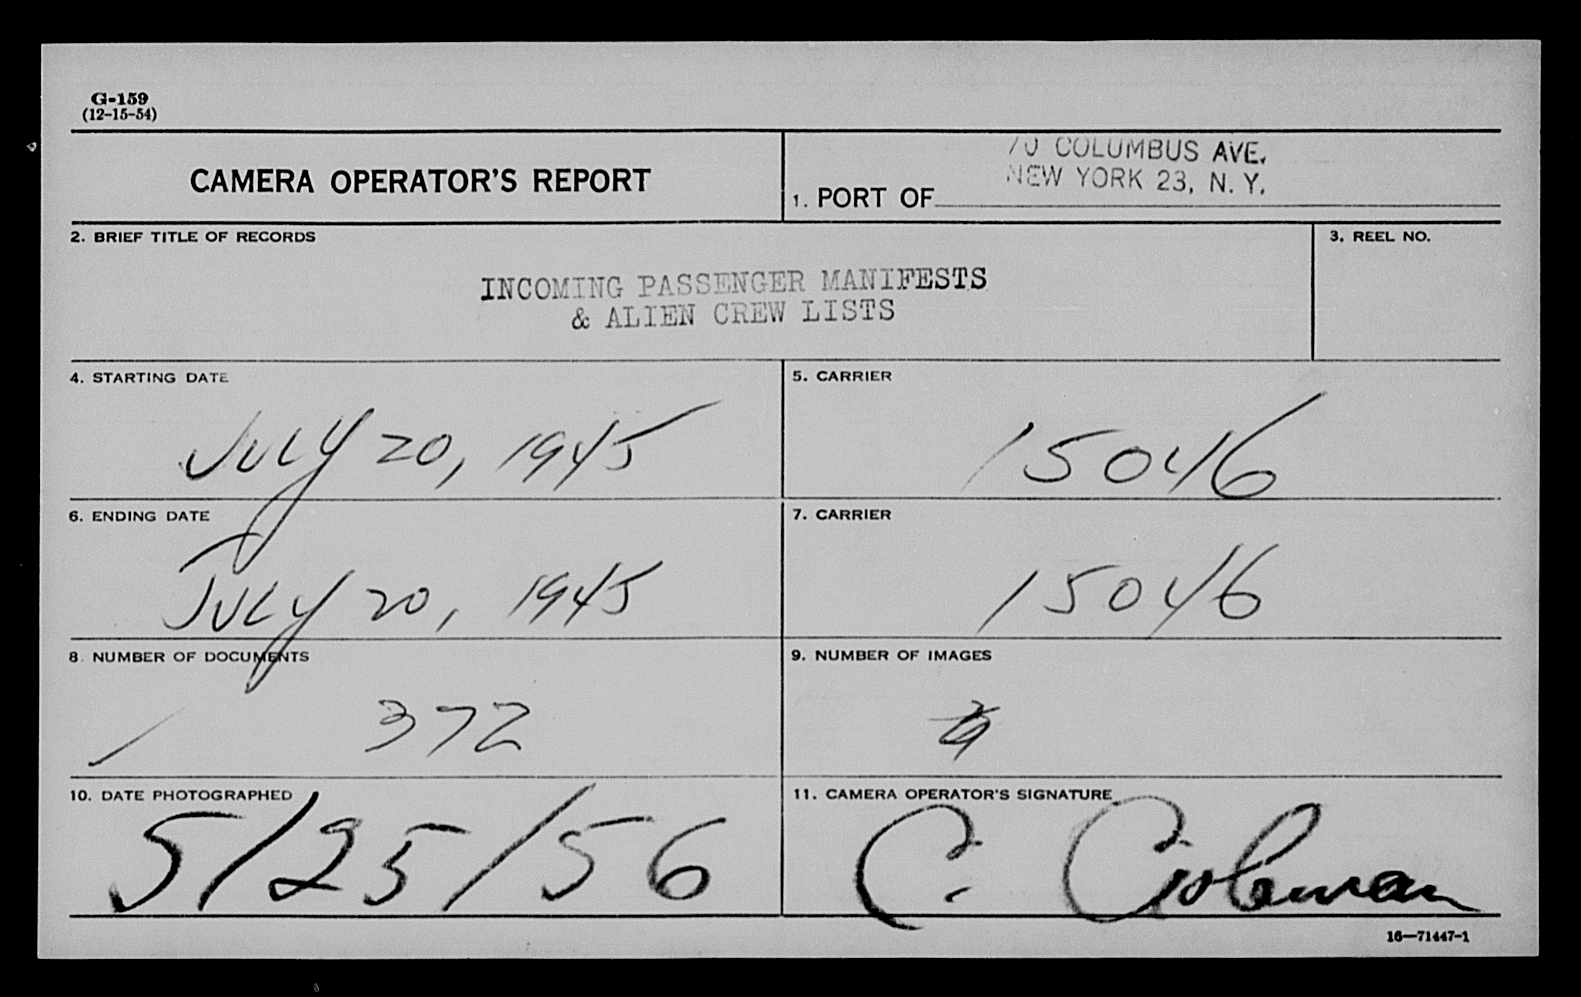 G-159
(12-15-54)
CAMERA OPERATOR'S REPORT
70 COLUMBUS AVE.
NEW YORK 23, N. Y.
1. PORT OF
2. BRIEF TITLE OF RECORDS
3. REEL NO.
INCOMING PASSENGER MANIFESTS
& ALIEN CREW LISTS
4. STARTING DATE
5. CARRIER
JULY 20, 1945
15046
6. ENDING DATE
7. CARRIER
JULY 20, 1945
15046
8. NUMBER OF DOCUMENTS
9. NUMBER OF IMAGES
372
10. DATE PHOTOGRAPHED
11. CAMERA OPERATOR'S SIGNATURE
5/25/56
C. Coleman
16—71447-1